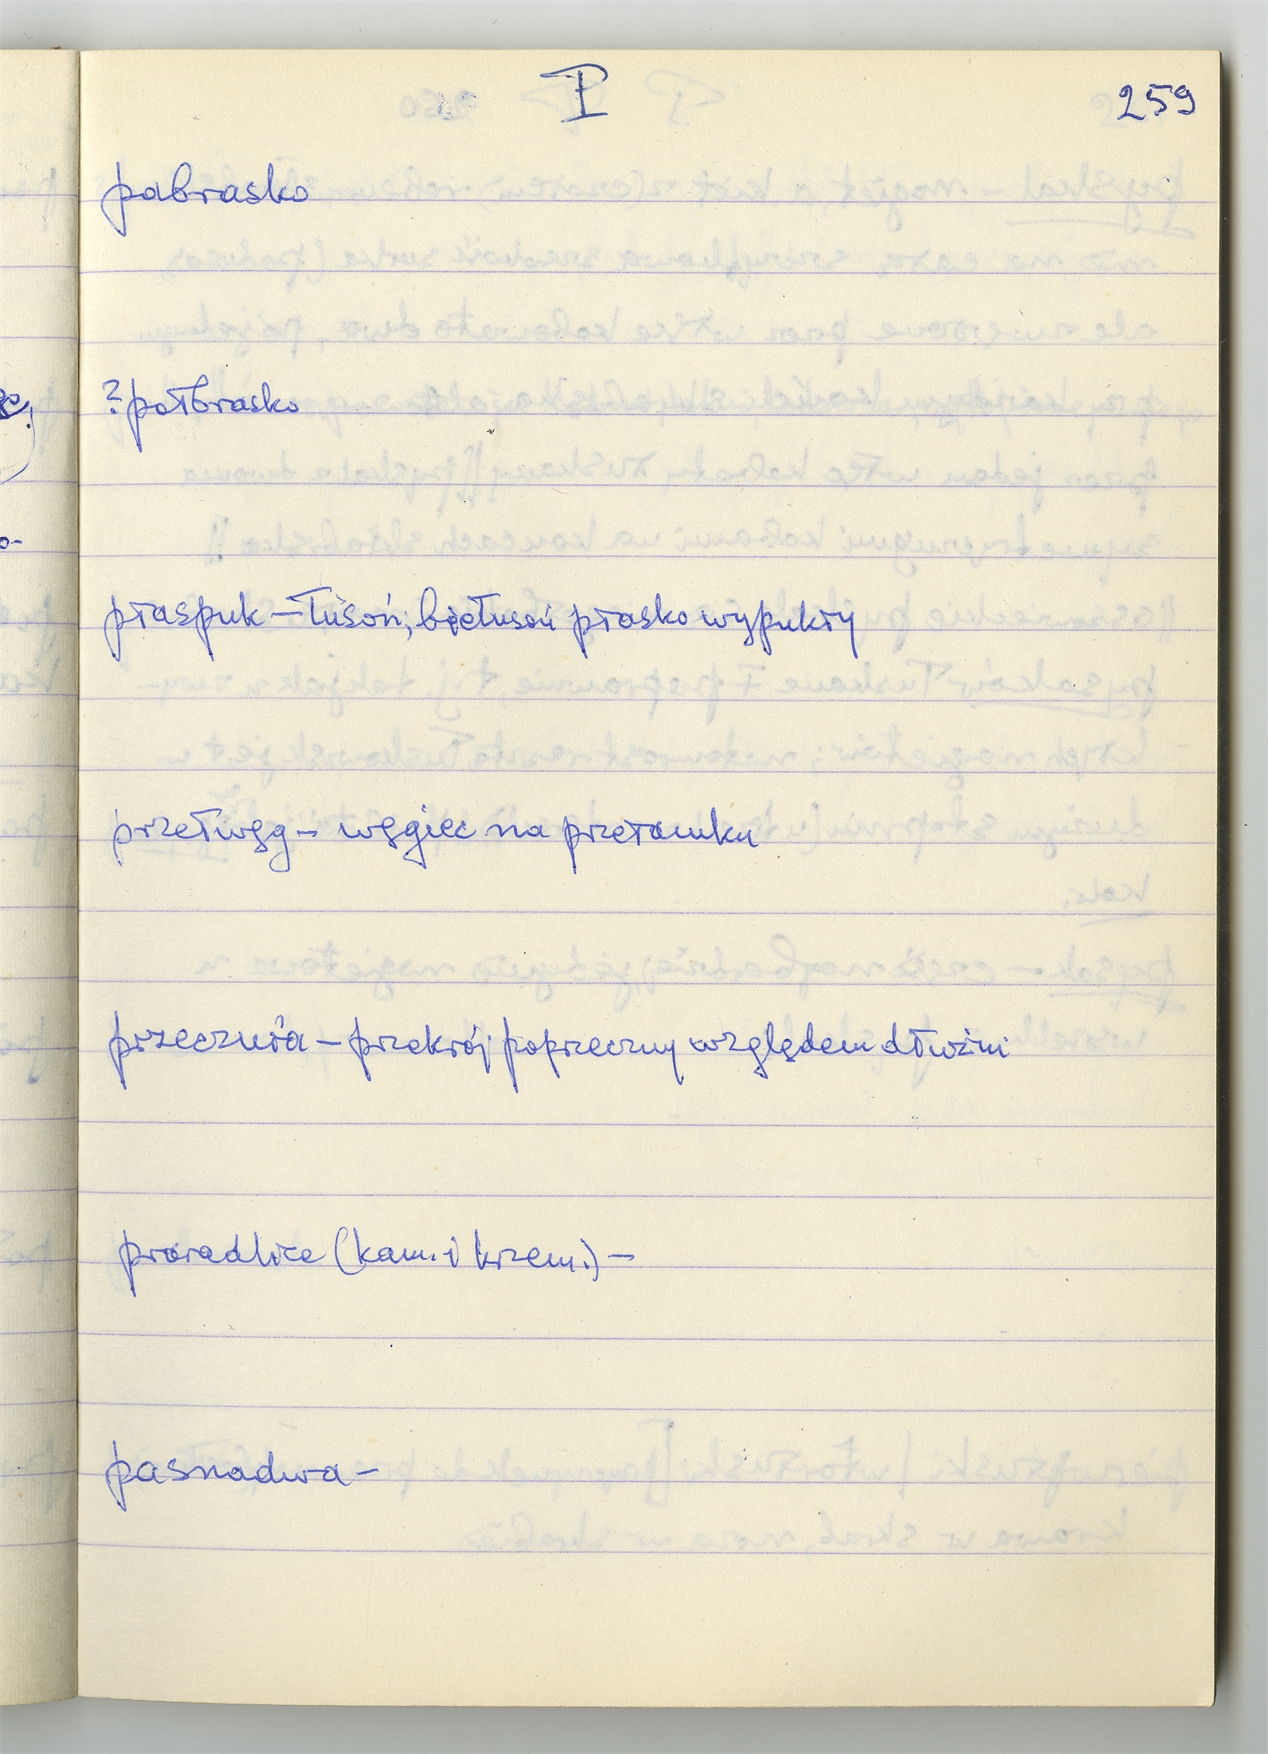 P
259
pabrasko
? połbrasko
płaspuk – łusoń; biełusoń płasko wypukły
przełwęg – węgiec na przełamku
przeczuła – przekrój poprzeczny względem dłużni
proradlice (kam. i krzem.) –
pasnadwa –